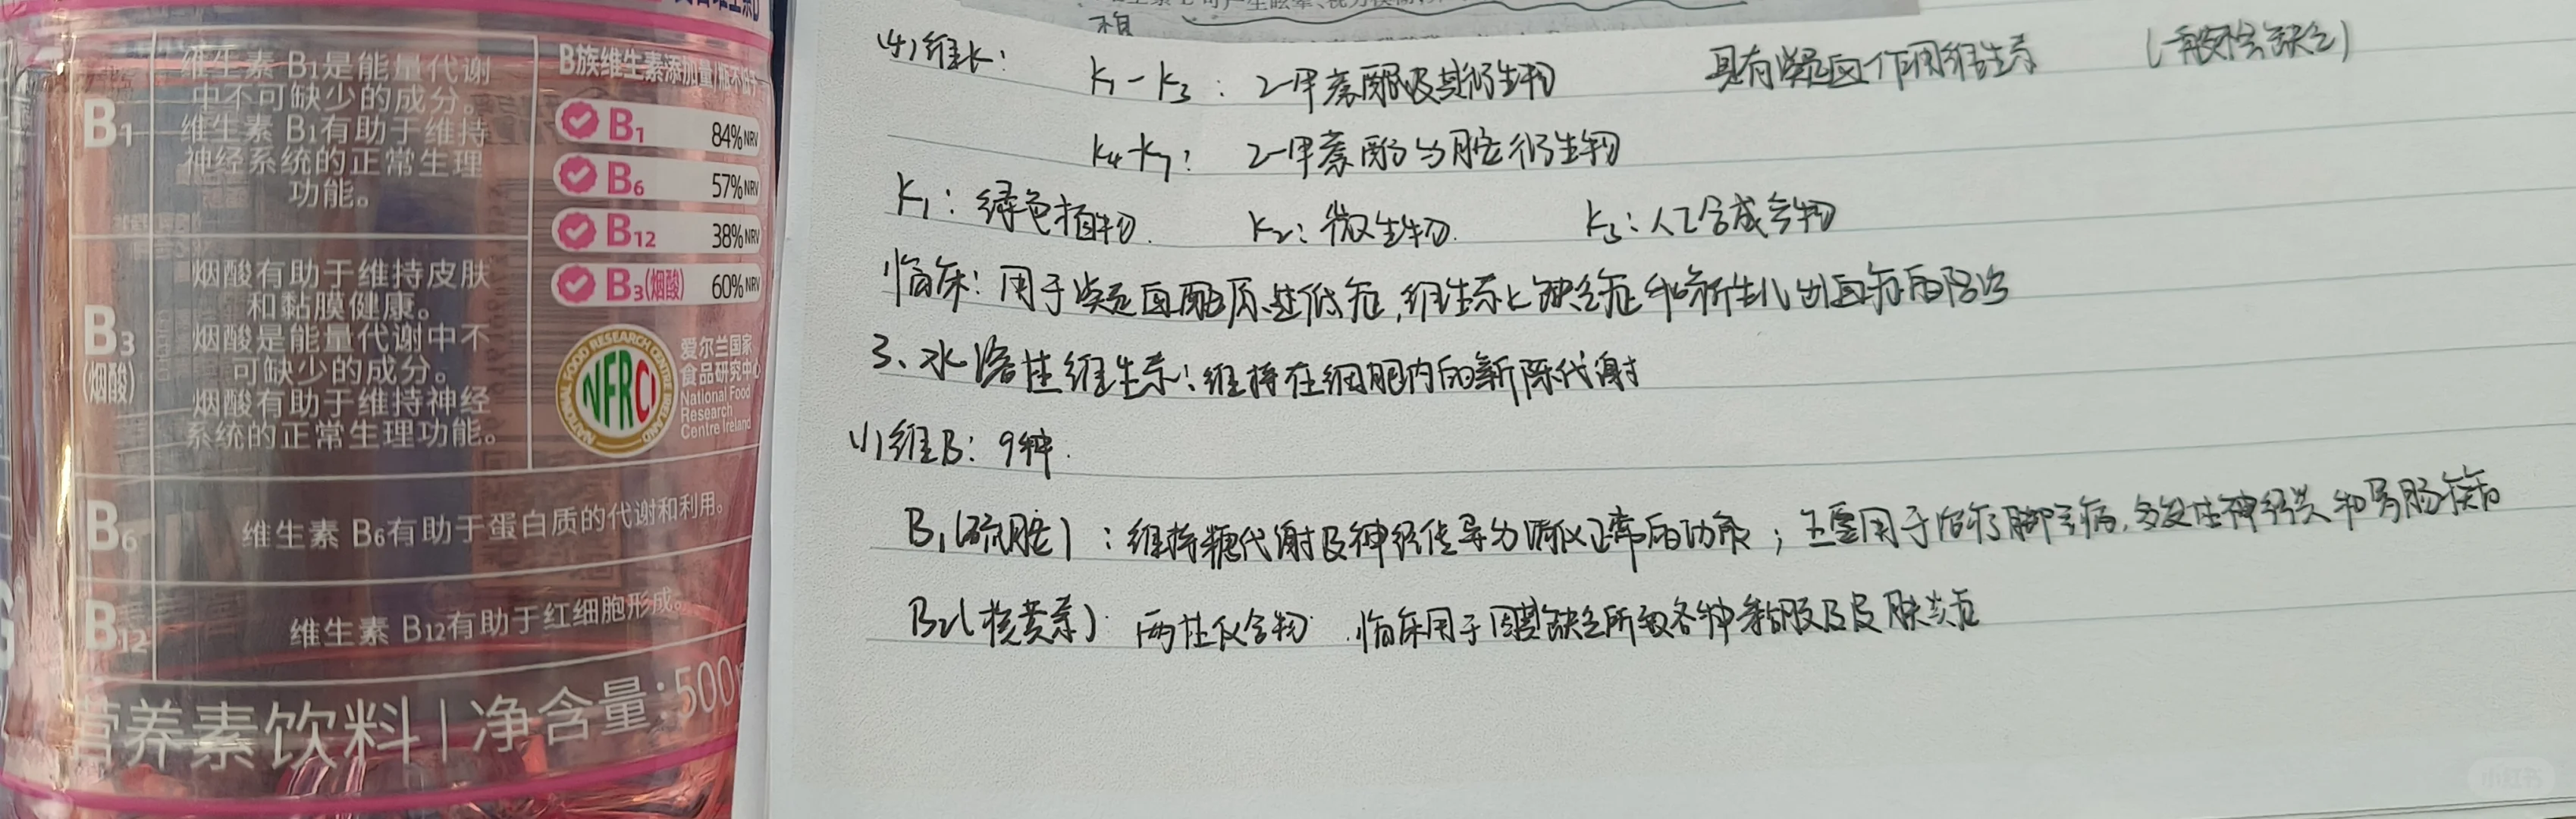 B1
维生素 B1是能量代谢
中不可缺少的成分。
维生素 B1有助于维持
神经系统的正常生理
功能。
B3
(烟酸)
烟酸有助于维持皮肤
和黏膜健康。
烟酸是能量代谢中不
可缺少的成分。
烟酸有助于维持神经
系统的正常生理功能。
B6
维生素 B6有助于蛋白质的代谢和利用。
B12
维生素 B12有助于红细胞形成。
B族维生素添加量/瓶不低于
B1 84%NRV
B6 57%NRV
B12 38%NRV
B3(烟酸) 60%NRV
NATIONAL FOOD RESEARCH CENTRE IRELAND
NFRCI
爱尔兰国家
食品研究中心
National Food
Research
Centre Ireland
营养素饮料 | 净含量:500
(4)维K:
K1-K3: 2-甲萘醌及其衍生物 具有凝血作用维生素 (一般不会缺乏)
K4-K7: 2-甲萘酚与胺衍生物
K1: 绿色植物. K2: 微生物. K3: 人工合成产物
临床: 用于凝血酶原过低症,维生素K缺乏症和新生儿出血症的防治
3、水溶性维生素: 维持在细胞内的新陈代谢
(1)维B: 9种.
B1(硫胺): 维持糖代谢及神经传导与消化正常的功能; 主要用于治疗脚气病,多发性神经炎和胃肠疾病
B2(核黄素): 两性化合物. 临床用于因其缺乏所致各种黏膜及皮肤炎症
小红书